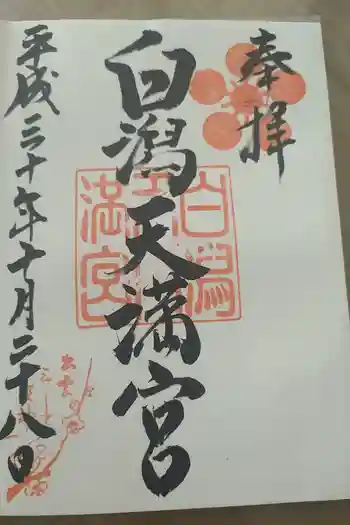 奉拝
白潟天満宮
平成三十年十月二十八日
白潟
天
満宮